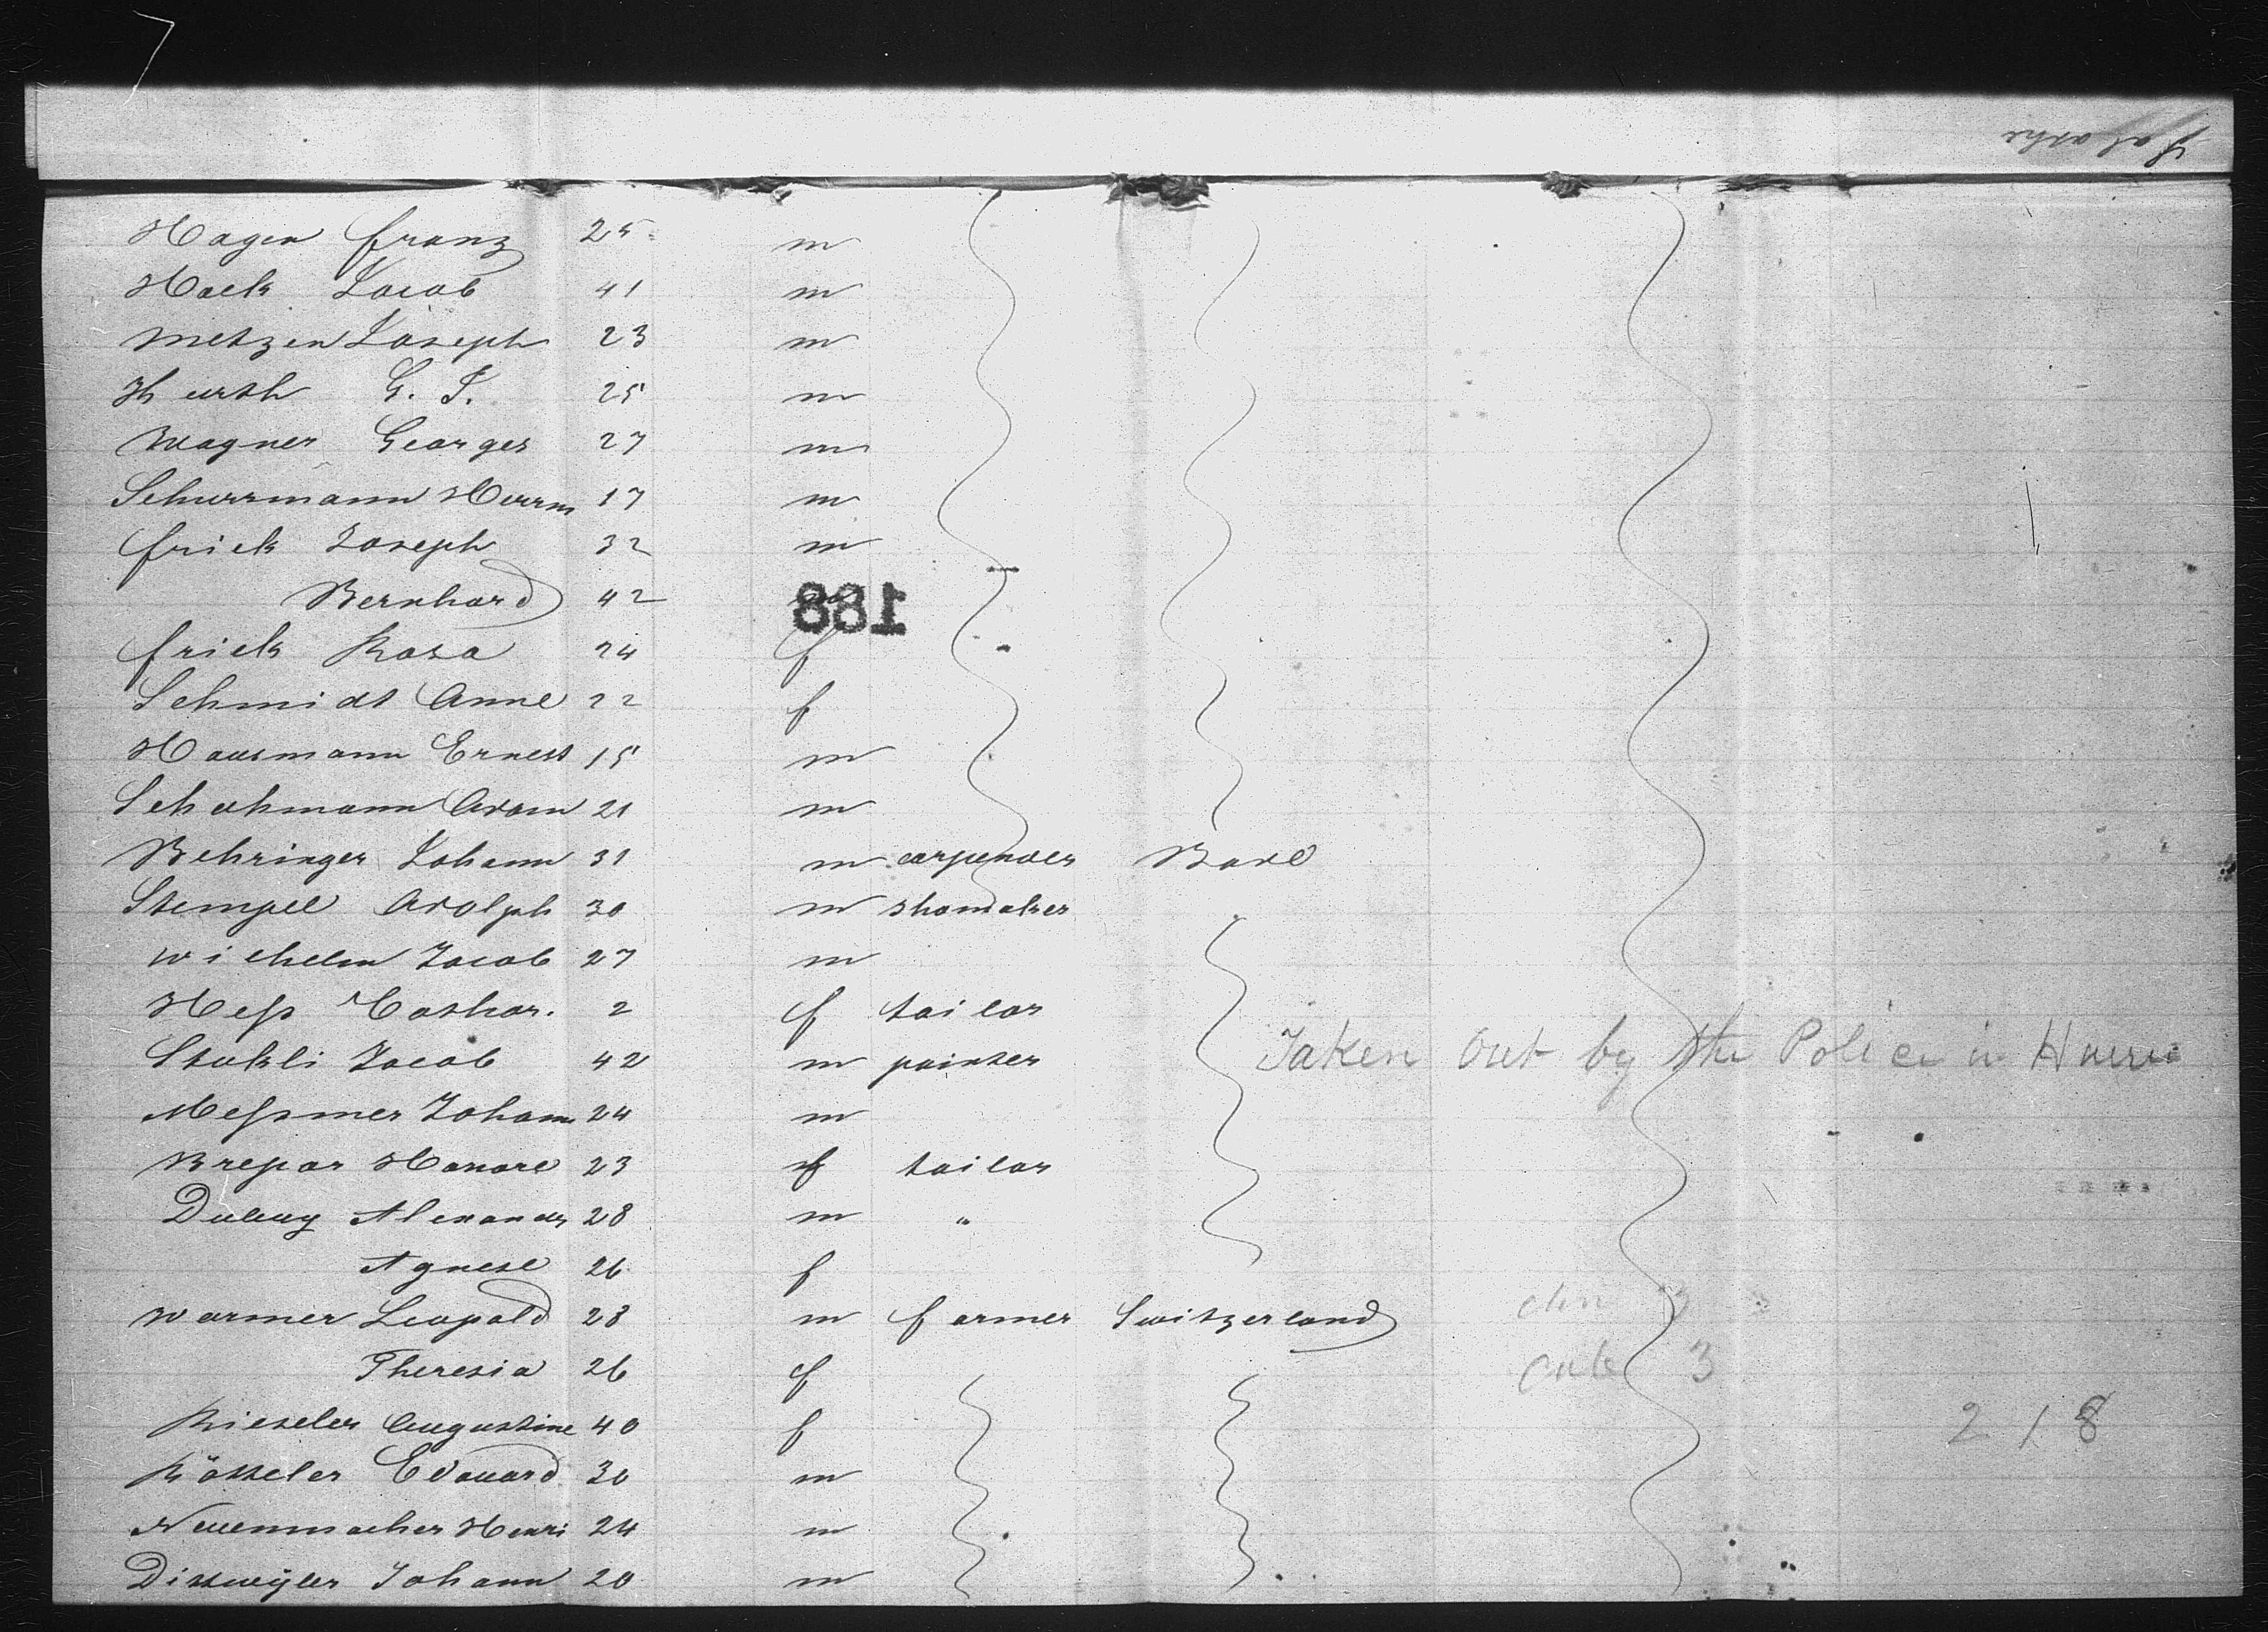 Hagen Franz 25 m
Hack Jacob 41 m
Metzen Joseph 23 m
Hursh G. J. 25 m
Wagner Georges 27 m
Schurrmann Herrm 17 m
Frick Joseph 32 m
Bernhard 42 m
188
Frick Rosa 24 f
Schmidt Anne 22 f
Hausmann Ernest 15 m
Schahmann Adam 21 m
Behringer Johann 31 m carpender Bade
Stempel Adolph 30 m shomaker
Wilhelm Jacob 27 m
Heß Cathar. 2 f tailor
Stukli Jacob 42 m painter Taken out by the Police in
Meßmer Johann 24 m
Brepar Honore 23 f tailor
Alexander 28 m "
Agnese 26 f
Warmer Leopold 28 m farmer Switzerland
Theresia 26 f 3
Rieseler Augustine 40 f 218
Rösseler Edouard 30 m
Neuenmacher Henri 24 m
Dissweÿler Johann 20 m